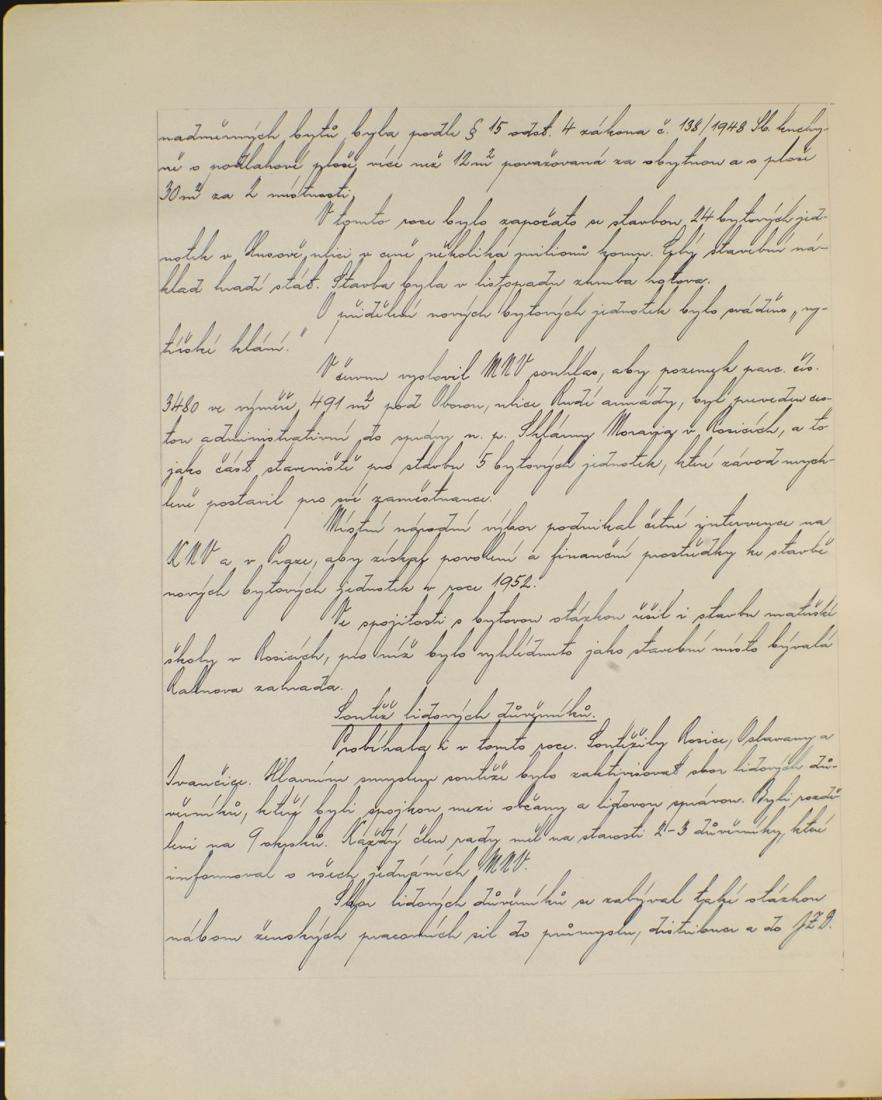 nadměrných bytů byla podle § 15 odst. 4 zákona č. 138/1948 Sb. kuchy-
ně o podlahové ploše více než 12 m² považovaná za obytnou a o ploše
30 m² za 2 místnosti.
V tomto roce bylo započato se stavbou 24 bytových jed-
notek v Husově ulici v ceně několika milionů korun. Celý stavební ná-
klad hradí stát. Stavba byla v listopadu zhruba hotova.
O přidělení nových bytových jednotek bylo sváděno „ry-
tířské klání."
V červnu vyslovil MNV souhlas, aby pozemek parc. čís.
3480 ve výměře 491 m² pod Oborou, ulice Rudé armády, byl převeden ces-
tou administrativní do správy n. p. Sklárny Moravia v Rosicích, a to
jako část staveniště pro stavbu 5 bytových jednotek, které závod urych-
leně postavil pro své zaměstnance.
Místní národní výbor podnikal četné intervence na
KNV a v Praze, aby získal povolení a finanční prostředky ke stavbě
nových bytových jednotek v roce 1952.
Ve spojitosti s bytovou otázkou řešil i stavbu mateřské
školy v Rosicích, pro níž bylo vyhlédnuto jako stavební místo bývalá
zahrada.
Soutěž lidových důvěrníků.
Probíhala i v tomto roce. Soutěžily Rosice, Oslavany a
Ivančice. Hlavním smyslem soutěže bylo zaktivisovat sbor lidových dů-
věrníků, kteří byli spojkou mezi občany a lidovou správou. Byli rozdě-
leni na 9 okrsků. Každý člen rady měl na starosti 2-3 důvěrníky, které
informoval o všech jednáních MNV.
Sbor lidových důvěrníků se zabýval také otázkou
náboru ženských pracovních sil do průmyslu, distribuce a do JZD.